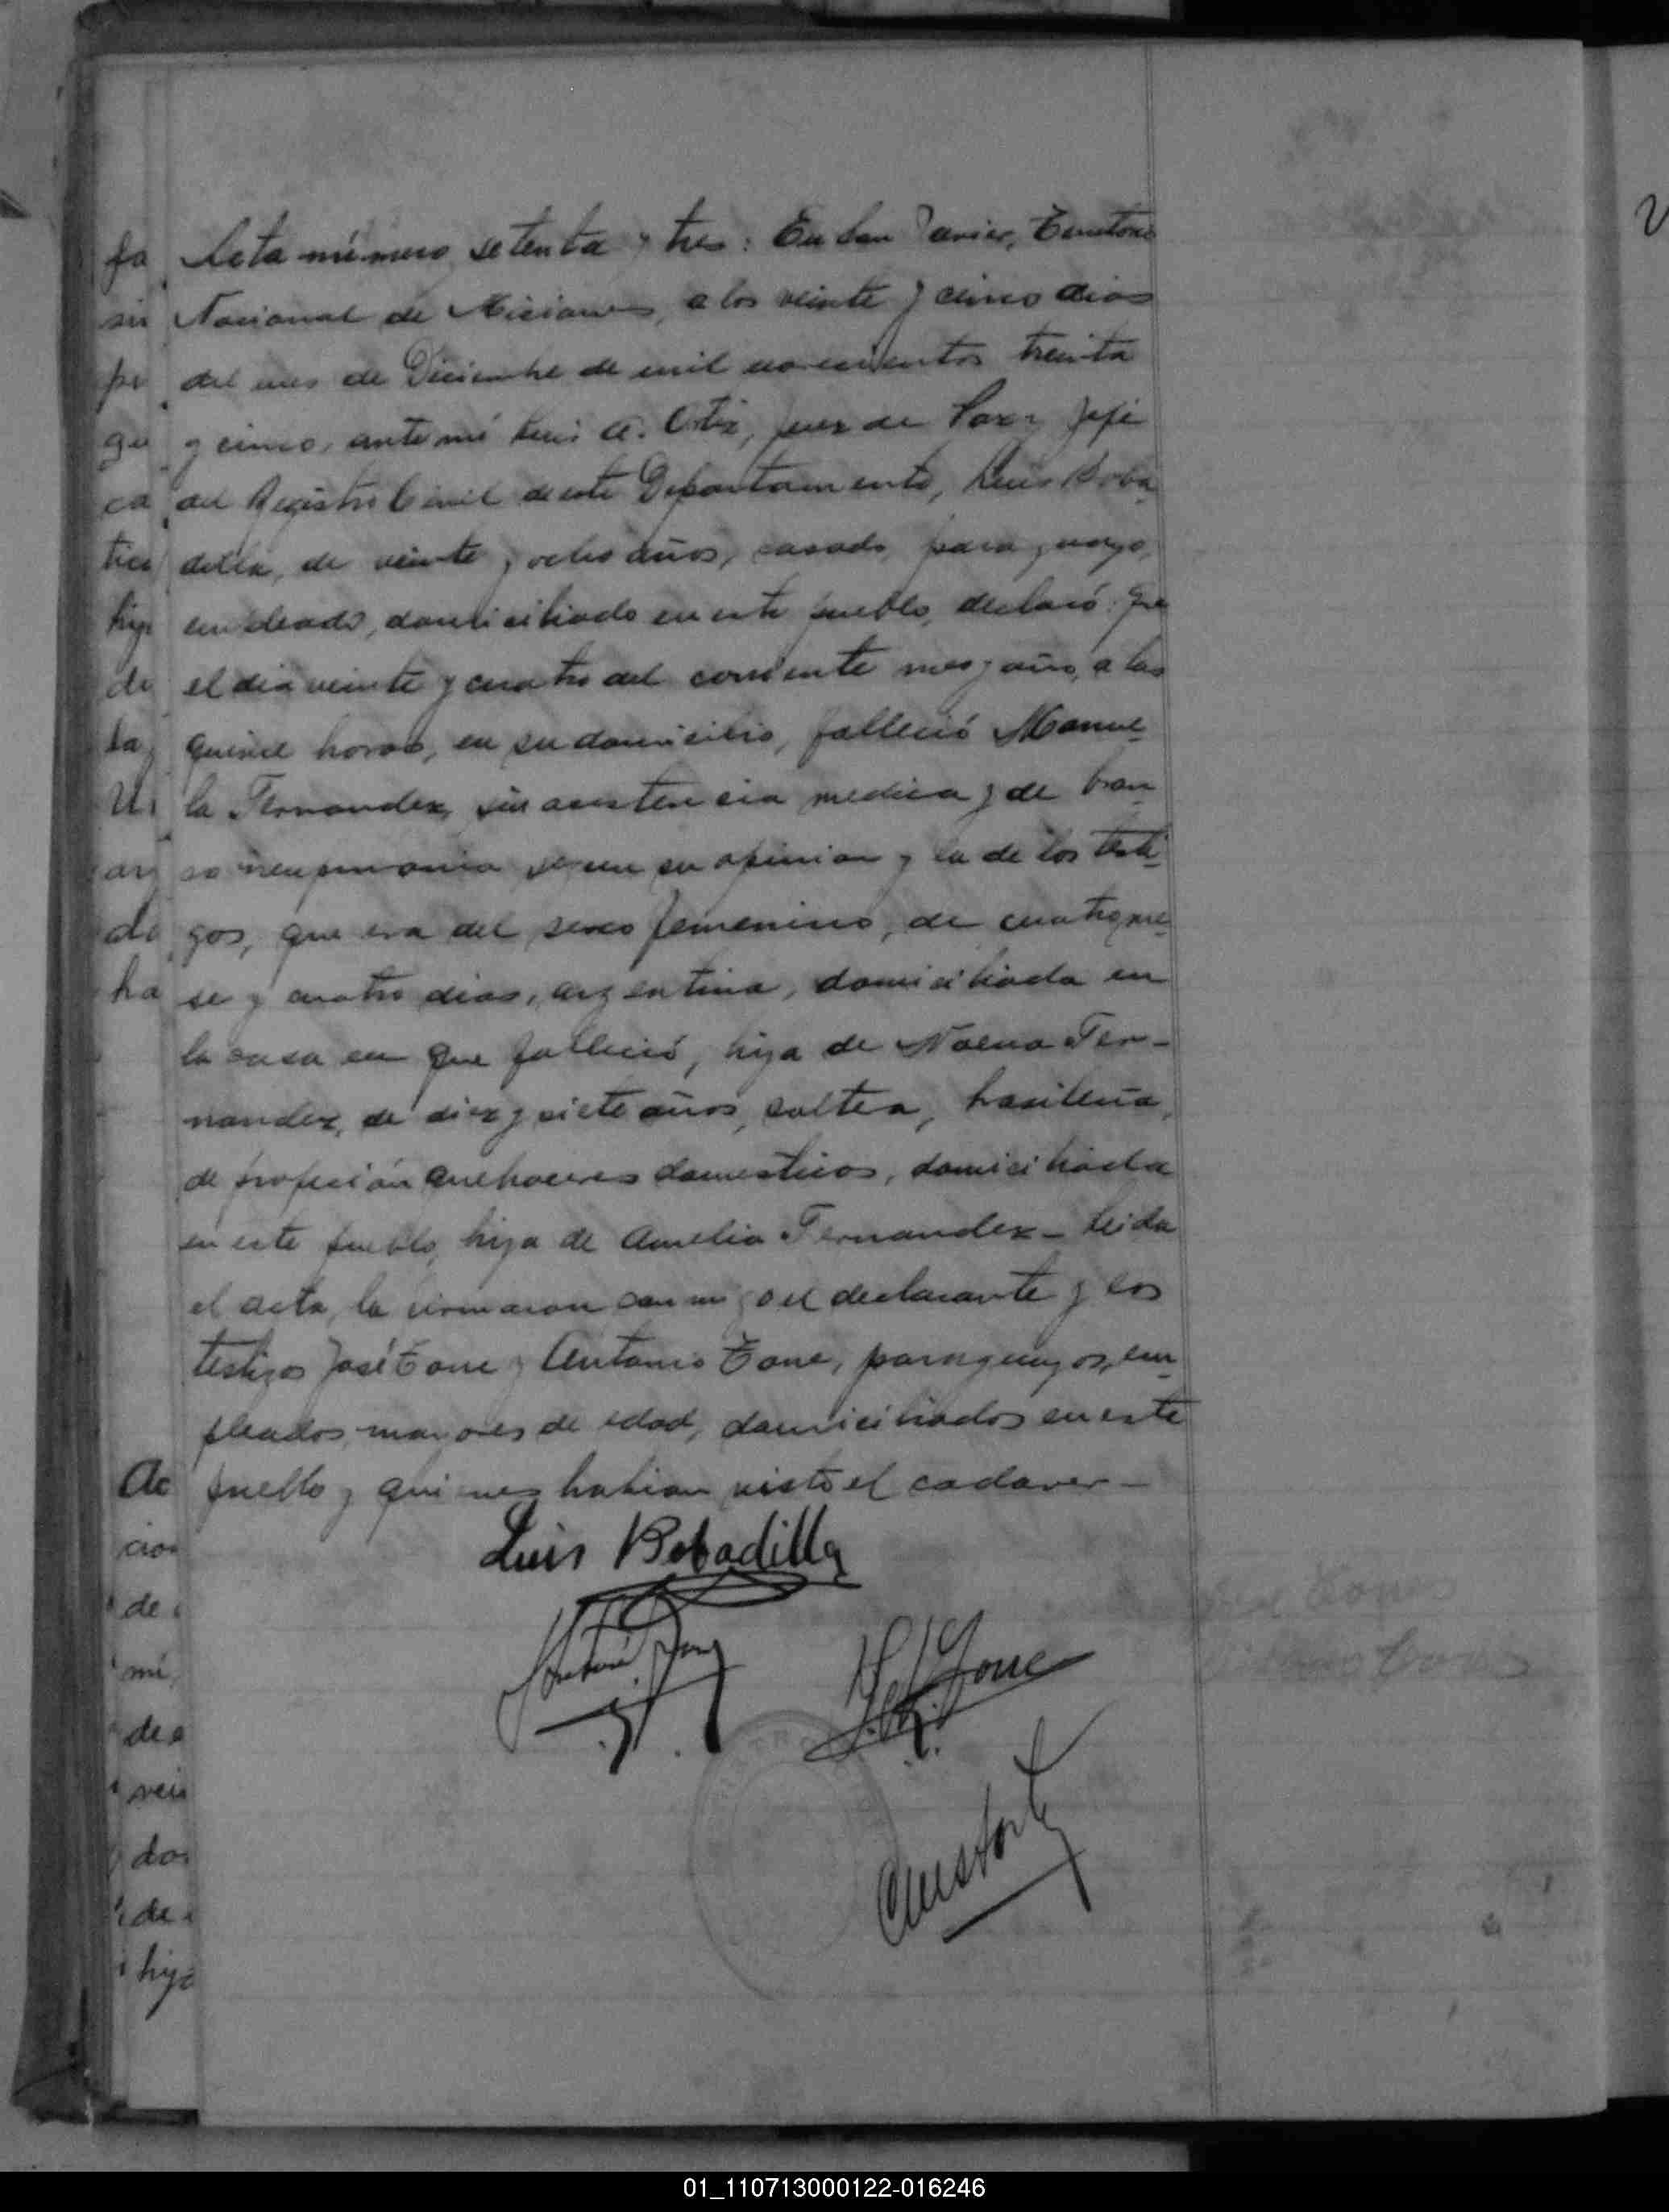 Acta número setenta y tres: En San Javier, Territorio
Nacional de Misiones, a los veinte y cinco dias
del mes de Diciembre de mil novecientos treinta
y cinco, ante mi Luis A. Ortiz, juez de Paz y Jefe
del Registro Civil de este Departamento, Luis Boba
dilla, de veinte y ocho años, casado, paraguayo,
empleado, domiciliado en este pueblo, declaró: Que
el dia veinte y cuatro del corriente mes y año, a las
quince horas, en su domicilio, falleció Manue-
la Fernandez, sin asistencia medica y de bron
co neupmonia segun su opinion y la de los testi-
gos, que era del sexo femenino, de cuatro me-
se y cuatro dias, argentina, domiciliada en
la casa en que falleció, hija de Fer-
nandez, de diez y siete años, soltera, brasileña,
de profeción quehaceres domesticos, domiciliada
en este pueblo, hija de Amelia Fernandez - Leida
el acta, la firmaron conmigo el declarante y los
testigos José y Antonio paraguayos, em-
pleados, mayores de edad, domiciliados en este
pueblo y quienes habian visto el cadaver -
Luis Bobadilla
fa
sin
pe
gu
ca
hij
de
ta
do
ha
Ac
cion
de
mi,
de
vein
dos
de
hij
01_110713000122-016246